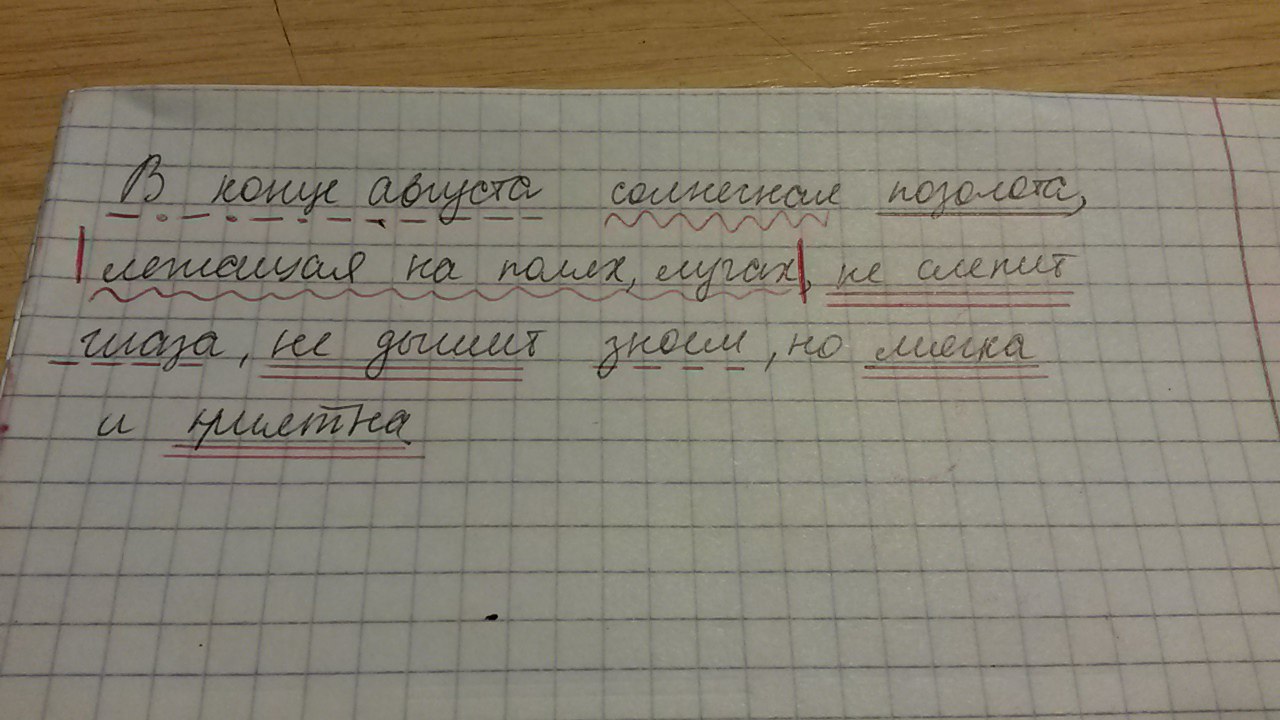 В конце августа солнечная позолота,
лежащая на полях, лугах, не слепит
глаза, не дышит зноем, но мягка
и приятна